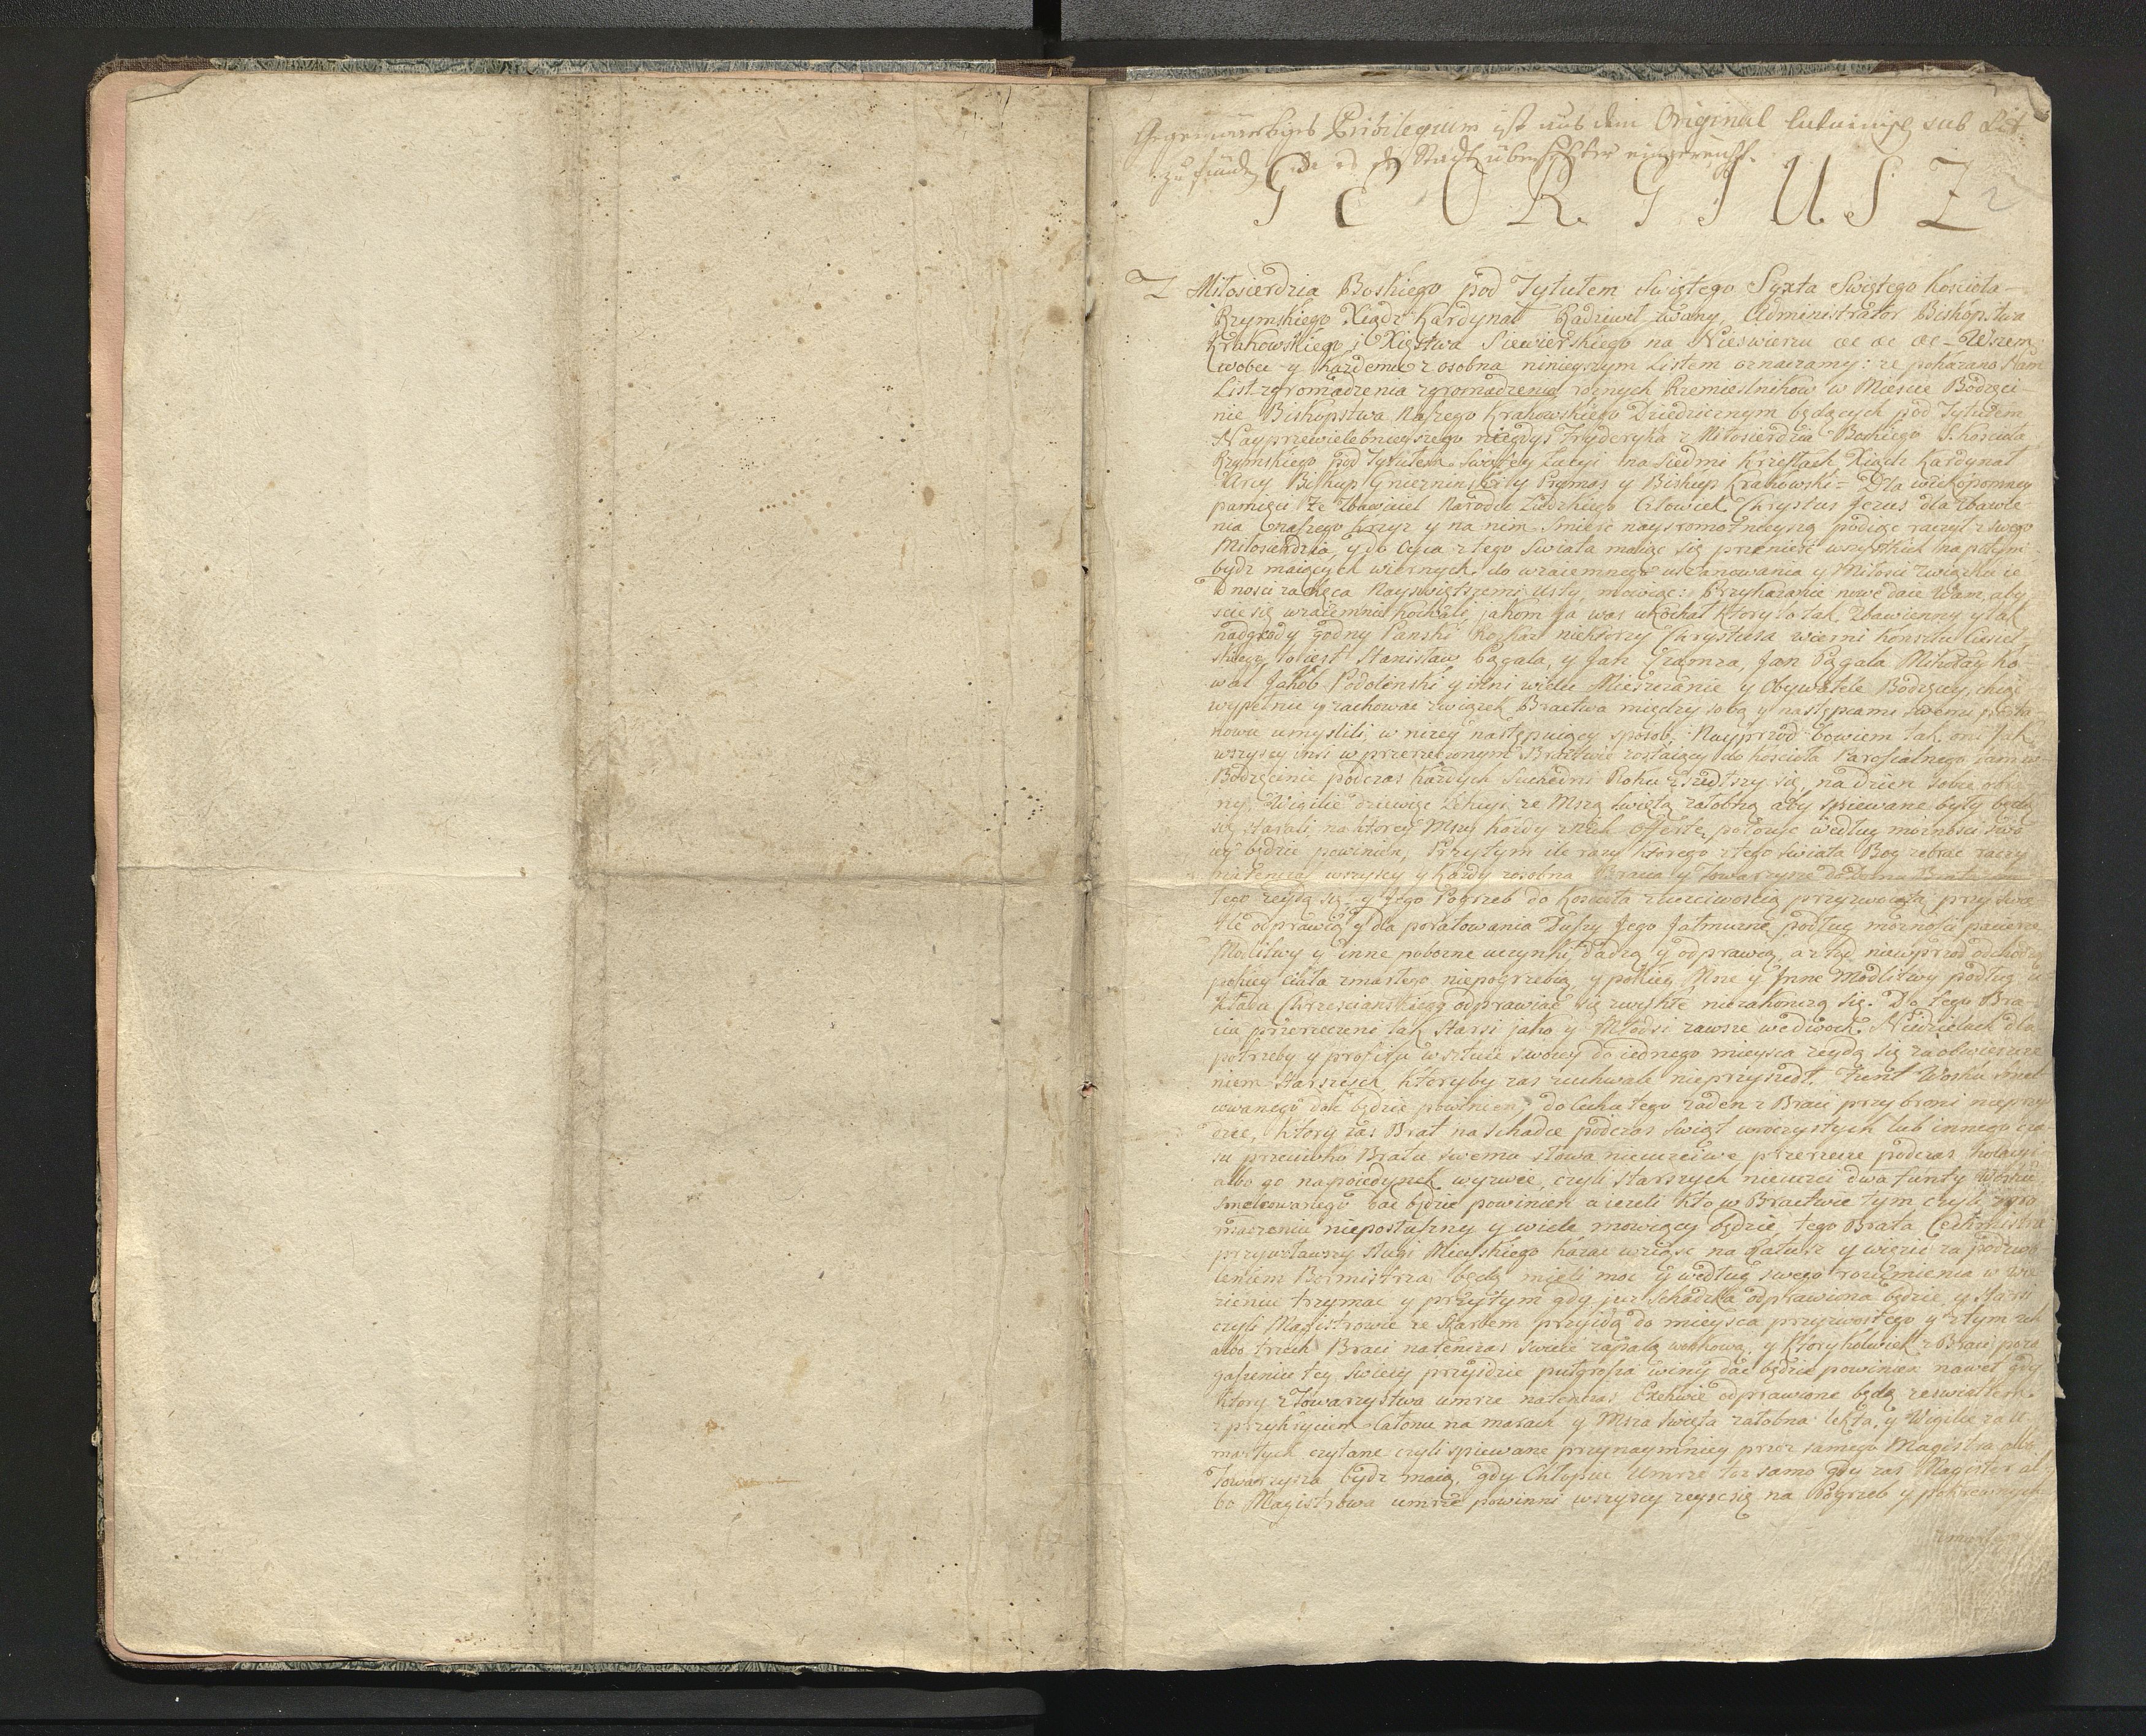 Gegenwärtiges Privilegium ist aus dem Original lateinisch sub Lit.
zu finden
GEORGIUSZ
Z Miłosierdzia Boskiego pod Tytułem Swiętego Syxta Swiętego Kosciola
Rzymskiego Xiądz Kardynał Radziweł zwany, Administrator Biskopstwa
Krakowskiego i Xięstwa Siewierskiego na Nieswierzu &c &c &c – Wszem
wobec y każdemu z osobna ninieyszym Listem oznaczamy: ze pokazano Nam
List zgromadzenia zgromadzenia roznych Rzemiesnikow w Miescie Bodzęci
nie Biskopstwa Naszego Krakowskiego Dziedzicznym będących pod Tytułem
Nayprzewielebnieyszego niegdys Fryderyka z Miłosierdzia Boskiego S. Kosciola
Rzymskiego pod Tytułem Swiętey Łucyi na Siedmi Krzesłach Xiądz Kardynał
Arcy Biskup Gnieznienski y Prymas y Biskup Krakowski = Dla wiekopomney
pamięci Ze Zbawiciel Narodu Ludzkiego Człowiek Chrystus Jezus dla Zbawie
nia naszego Krzyz y na nim Smierć naysromotnieyszą podiąc raczył z swego
Miłosierdzia, y do Oyca z tego Swiata maiąc się przenieść wszystkich na potym
bydz maiących wiernych do wzaiemnego uszanowania y Miłosci związku ie
dnosci zachęca Nayswiętszemi Usty, mowiąc: Przykazanie nowe daie Wam, aby
scie się wzaiemnie kochali, jakom Ja was ukochał ktory to tak Zbawienny y tak
nadgrody godny Panski Rozkaz niektorzy Chrystusa wierni Konsztu Ciesiel
skiego, to iest Stanisław Pągała, y Jan Czamza, Jan Pągała Mikołay Ko
wal Jakob Podolenski y inni wielu Mieszczanie y Obywatele Bodzęcy, chcąc
wypełnic y zachować związek Bractwa między sobą y następcami swemi posta
nowic umyslili, w nizey następuiący sposob. Nayprzod bowiem tak oni jak
wszyscy inni w przerzeczonym Bractwie zostaiący do Kosciola Parofialnego tam w
Bodzęcinie podczas każdych Suchedni Roku zszedłszy się, na dzien sobie obra
ny Wigilie dziewięc Lekcyi ze Mszą Swiętą załobną aby spiewane były będą
się starali, na ktorey Mszy kazdy z nich Offertę położyć według moznosci swo
iey będzie powinien, Przytym ile razy ktorego z tego Swiata Bog zebrać raczy
natenczas wszyscy y każdy zosobna Bracia y Towarzysze do domu Brata
tego zeydą się, y Jego Pogrzeb do Kosciola z uczciwoscią przyzwoitą przy swie
tle odprawią y dla poratowania Duszy Jego Jałmuznę podług moznosci pacierze
Modlitwy y inne pobozne uczynki dadzą y odprawią, a ztąd nieuprzod odchodzą
pokiey Ciała zmarłego niepogrzebią, y pokiey Msze y Inne Modlitwy podług u
kładu Chrzescianskiego odprawiać się zwykłe niezakonczą się. Do tego Bra
cia przerzeczeni tak Starsi jako y Młodsi zawsze we dwoch Niedzielach dla
potrzeby y profitu w sztuce swoiey do iednego mieysca zeydą się za obwieszcze
niem Starszych, ktoryby zas zuchwale nieprzyszedł. Funt Wosku smel
cowanego dać będzie powinien, do Cechu tego zaden z Braci przy broni nieprzy
dzie, ktory zas Brat na schadce podczas Swiąt uroczystych lub innego cza
su przeciwko Bratu swemu słowa nieuczciwe przerzecze podczas kolacyi
albo go na poiedynek wyzwie, czyli starszych nieuczci dwa funty Wosku
smelcowanego dać będzie powinien a iezeli kto w Bractwie tym czyli zgro
madzeniu nieposłuszny y wiele mowiący będzie tego Brata Cechmistrze
przyzwawszy sługi Mieyskiego kazać wziąsc na Ratusz y więzić za pozwo
leniem Bormistrza będą mieli moc y według swego rozumienia w wię
zieniu trzymać y przytym gdy juz schadzka odprawiona będzie y starsi
czyli Magistrowie ze Skarbem przyidą do mieysca przyzwoitego y z tym ich
albo trzech Braci natenczas Swiecę zapalą woskową, y ktorykolwiek z Braci po za
gaszeniu tey Swiecy przyidzie pułgrosza winy dać będzie powinien nawet gdy
ktory z Towarzystwa umrze natenczas Exekwie odprawione będą ze swiatłem
z przykryciem Całonu na marach y Msza Swięta załobna lekta, y Wigilie za U
marłych czytane czyli spiewane przynaymniey przez samego Magistra albo
Towarzysza bydz maią, gdy Chłopiec umrze toz samo gdy zas Magister al
bo Magistrowa umrze powinni wszyscy zeysc się na Pogrzeb y pokrewnych
zmarłego